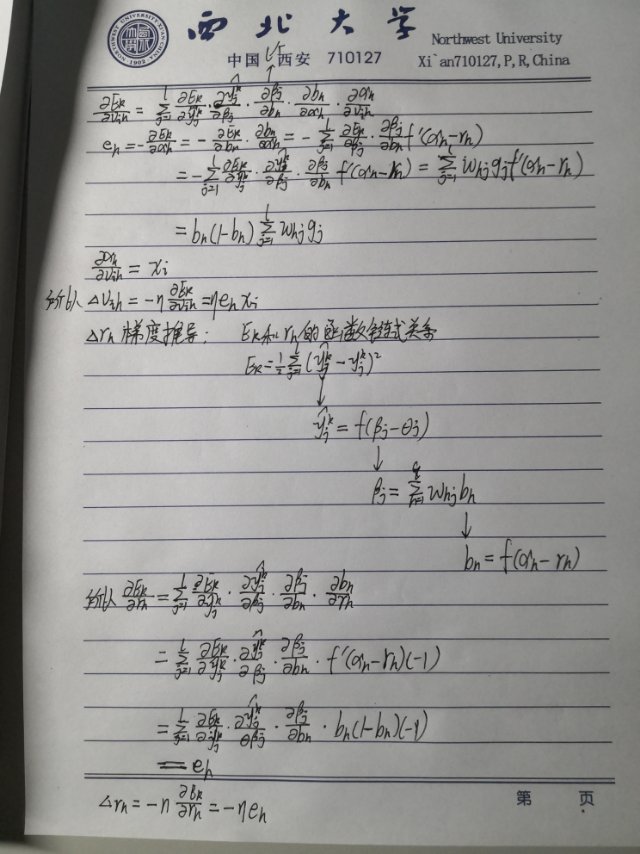 西北大学
Northwest University
中国 西安 710127
Xi`an710127,P,R,China
NORTHWEST UNIVERSITY
1902
∂E_k/∂v_ih = Σ_{j=1}^{l} ∂E_k/∂ŷ_j^k · ∂ŷ_j^k/∂β_j · ∂β_j/∂b_h · ∂b_h/∂α_h · ∂α_h/∂v_ih
e_h = -∂E_k/∂α_h = -∂E_k/∂b_h · ∂b_h/∂α_h = -Σ_{j=1}^{l} ∂E_k/∂β_j · ∂β_j/∂b_h f'(α_h-r_h)
= -Σ_{j=1}^{l} ∂E_k/∂ŷ_j^k · ∂ŷ_j^k/∂β_j · ∂β_j/∂b_h f'(α_h-r_h) = Σ_{j=1}^{l} w_hj g_j f'(α_h-r_h)
= b_h(1-b_h) Σ_{j=1}^{l} w_hj g_j
∂α_h/∂v_ih = x_i
所以 Δv_ih = -η ∂E_k/∂v_ih = ηe_h x_i
Δr_h 梯度推导: E_k和r_h的函数链式关系
E_k = 1/2 Σ_{j=1}^{l} (ŷ_j^k - y_j^k)²
↓
ŷ_j^k = f(β_j-θ_j)
↓
β_j = Σ_{h=1}^{q} w_hj b_h
↓
b_h = f(α_h-r_h)
所以 ∂E_k/∂r_h = Σ_{j=1}^{l} ∂E_k/∂ŷ_j^k · ∂ŷ_j^k/∂β_j · ∂β_j/∂b_h · ∂b_h/∂r_h
= Σ_{j=1}^{l} ∂E_k/∂ŷ_j^k · ∂ŷ_j^k/∂β_j · ∂β_j/∂b_h · f'(α_h-r_h)(-1)
= Σ_{j=1}^{l} ∂E_k/∂ŷ_j^k · ∂ŷ_j^k/∂β_j · ∂β_j/∂b_h · b_h(1-b_h)(-1)
= e_h
Δr_h = -η ∂E_k/∂r_h = -ηe_h
第 页